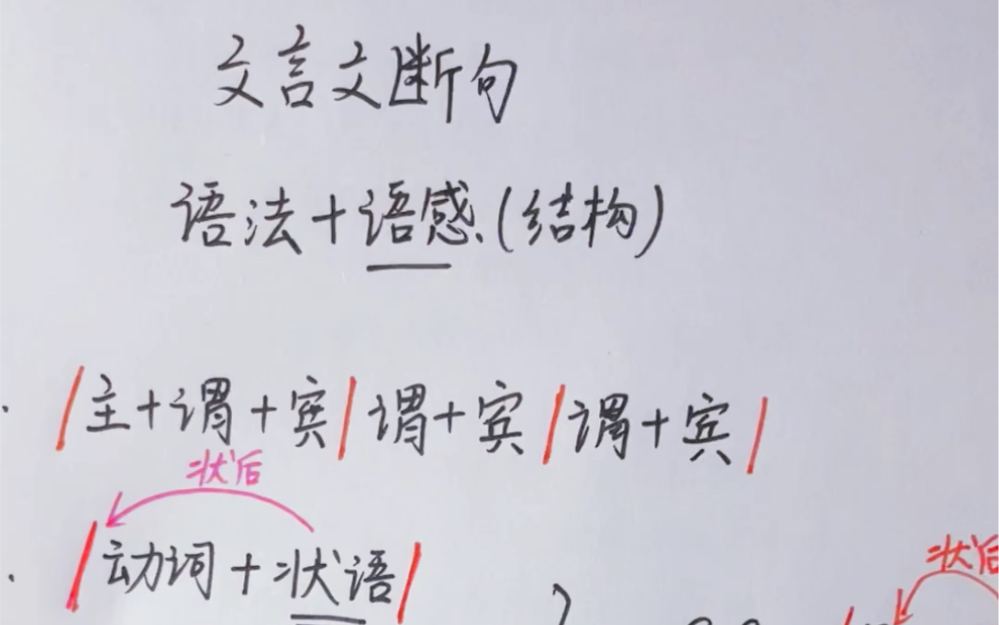 文言文断句
语法+语感(结构)
/主+谓+宾/谓+宾/谓+宾/
状后
/动词+状语/
状后